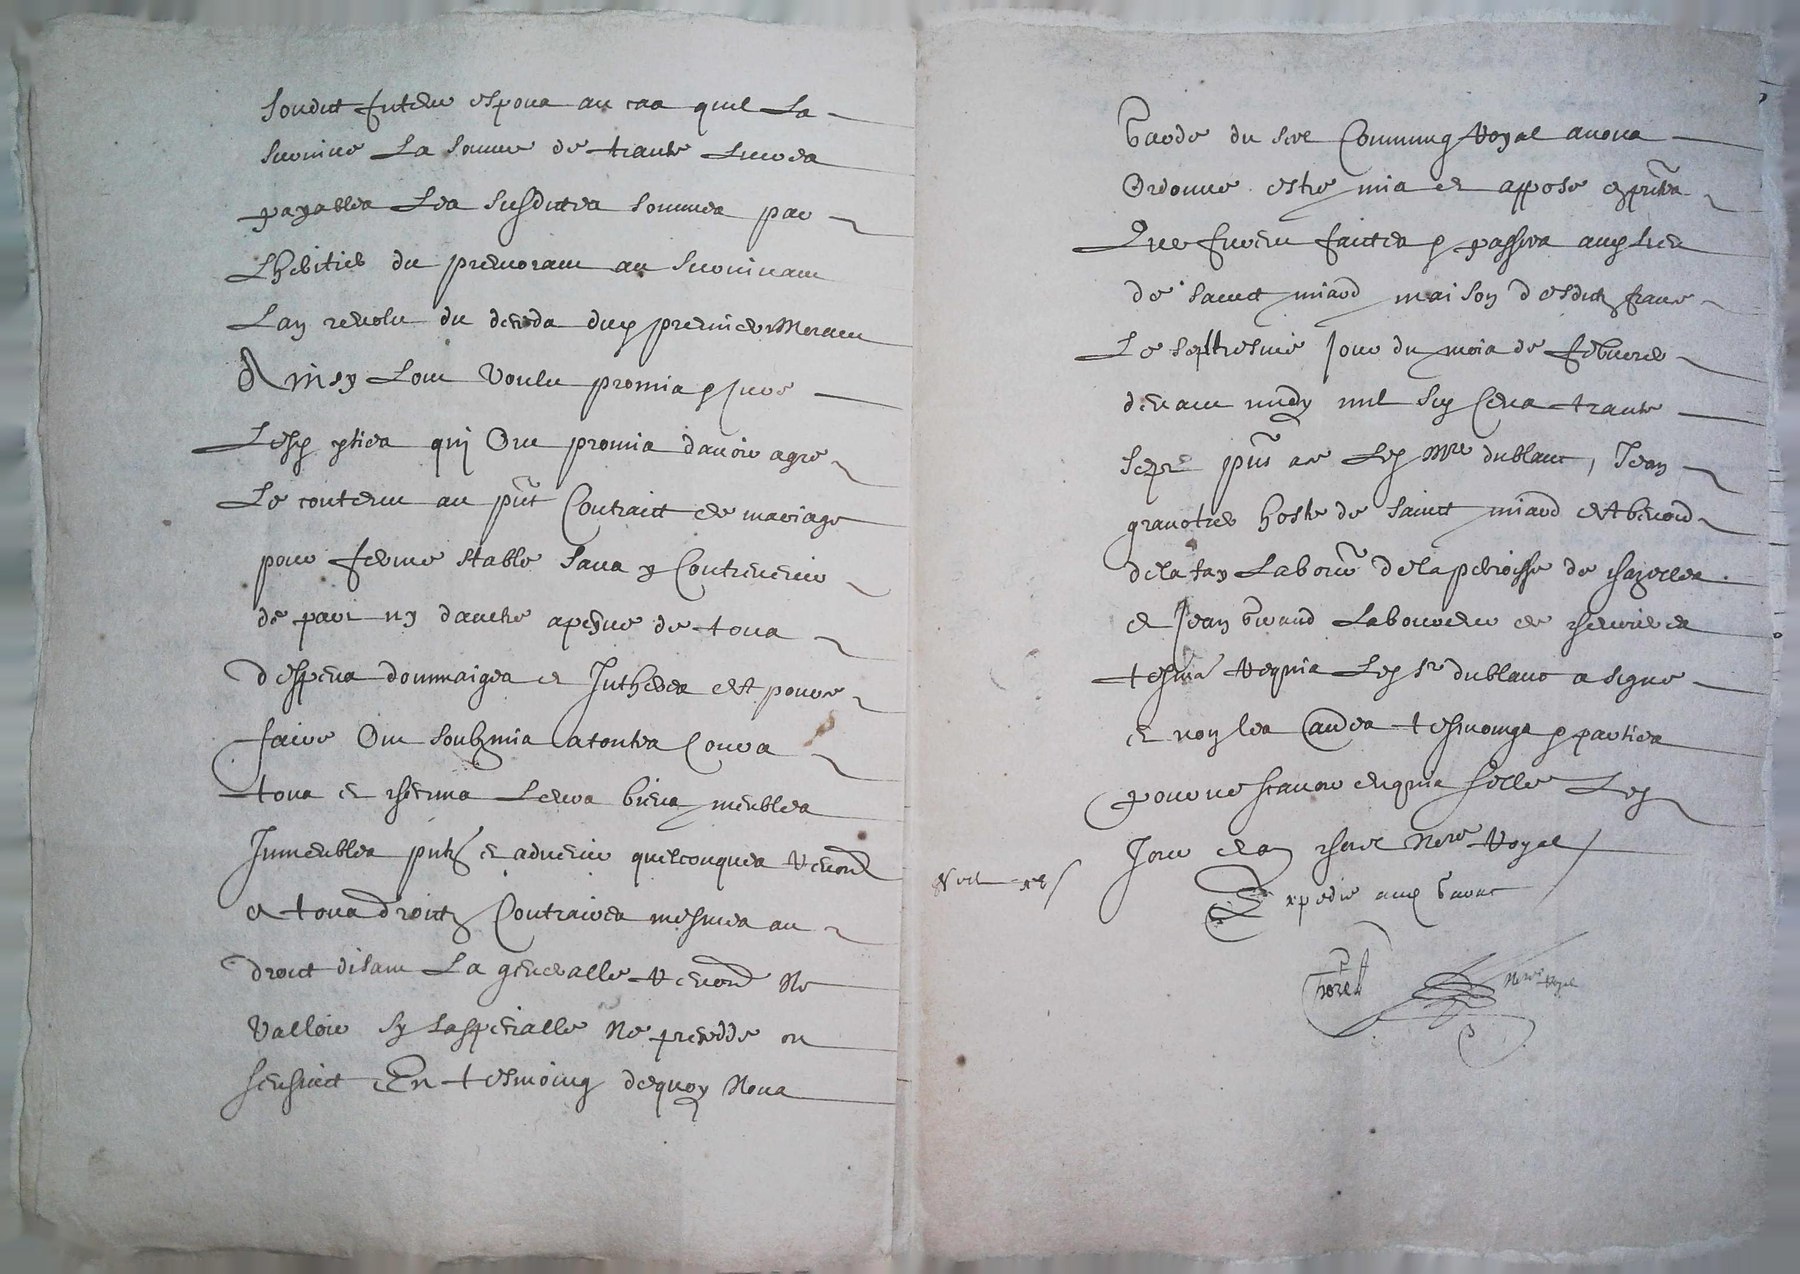 sondit futeur espoux au cas quil la
survive La somme de trante Livres
payables Les susdittes sommes par
Lheritier du premorant au survivant
Lan revolu du deceds dud premier Mourant
Ainsy Lont voulu promis & jure
Lesd pties qui Ont promis davoir agre
Le contenu au pnt Contraict de mariage
pour ferme stable sans y Contrevenir
de part ny dautre a peyne de tous
despens dommaiges et Intherests et pour ce
faire Ont soubzmis a toutes Cours
tous et chescuns Leurs biens meubles
Immeubles pntz et advenir quelconques Renonc
a tous droictz Contraires mesmes au
droict disant La generalle Renon Ne
Valloir sy La specialle Ne precedde ou
sensuict En tesmoing dequoy Nous
Garde du scel Commung Royal avons
Ordonne estre mis et appose esptes
Que furent faictes & passees aud lieu
de sainct miard maison desditz
Le septiesme jour du mois de febvrier
devant midy mil six Cens trante
sept pns a ce Led Mre dublanc, Jean
hoste de sainct miard et
dela fay Laboure dela perroisse de chazelles
et Jean Laboureur de
tesms Requis Led sr dublanc a signe
et non les au tesmoings & parties
pour ne scavoir enquis scelle Led
Jour et an Nore Royal
Expedie aud
Nore Royal